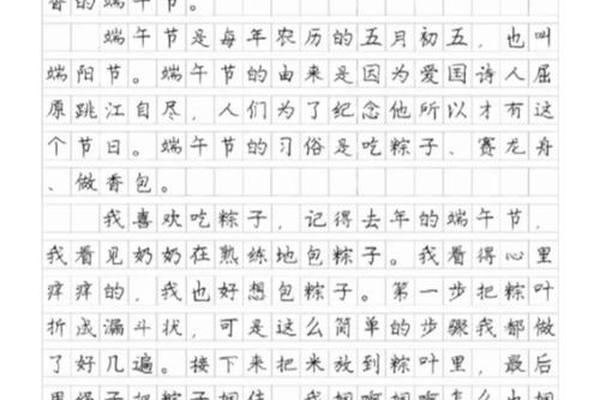 香的端午节。
端午节是每年农历的五月初五，也叫
端阳节。端午节的由来是因为爱国诗人屈
原跳江自尽，人们为了纪念他所以才有这
个节日。端午节的习俗是吃粽子、赛龙舟
、做香包。
我喜欢吃粽子，记得去年的端午节，
我看见奶奶在熟练地包粽子。我看得心里
痒痒的，我也好想包粽子。第一步把粽叶
折成漏斗状，可是这么简单的步骤我都做
了好几遍。接下来把米放到粽叶里，最后
用绳子把粽子捆住。我捆啊捆啊怎么也捆